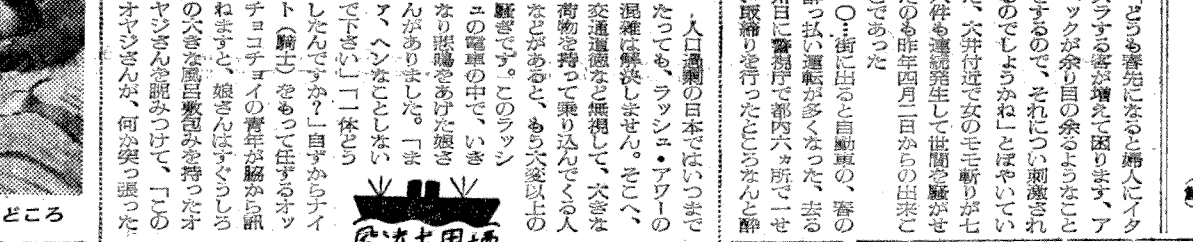 どうも春先になると婦人にイタ
ズラする客が増えて困ります、ア
ックが余り目の余るようなこと
をするので、それについ刺激され
るのでしょうかね」とぼやいてい
た、大井付近で女のモモ斬りが七
件も連続発生して世間を騒がせ
たのも昨年四月二日からの出来ご
とであった
〇…街に出ると自動車の、春の
酔っ払い運転が多くなった、去る
日に警視庁で都内六ヵ所で一せ
い取締りを行ったところなんと酔
人口過剰の日本ではいつまで
たっても、ラッシュ・アワーの
混雑は解決しません。そこへ、
交通道徳など無視して、大きな
荷物を持って乗り込んでくる人
などがあると、もう大変以上の
騒ぎです。このラッシ
ュの電車の中で、いき
なり悲鳴をあげた娘さ
んがありました。「ま
ァ、ヘンなことしない
で下さい」「一体どう
したんですか?」自ずからナイ
ト(騎士)をもって任ずるオッ
チョコチョイの青年が脇から訊
ねますと、娘さんはすぐうしろ
の大きな風呂敷包みを持ったオ
ヤジさんを睨みつけて、「この
オヤジさんが、何か突っ張った
どころ